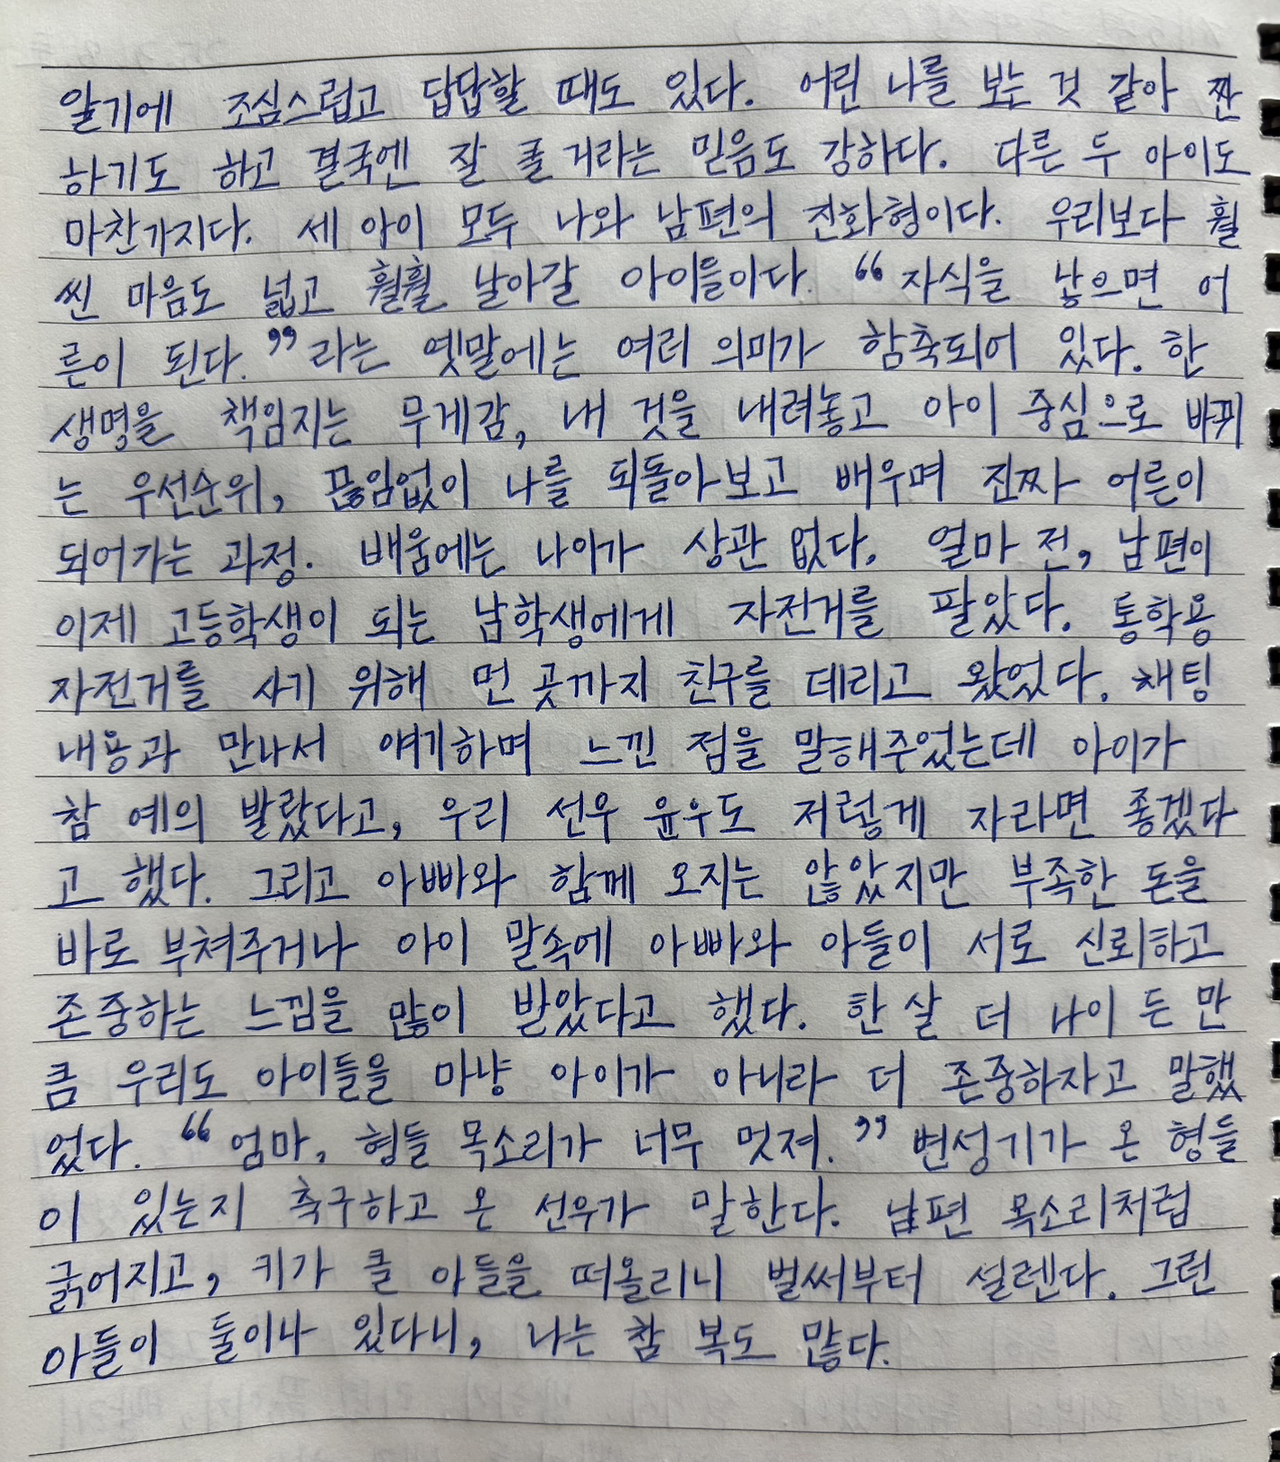 알기에 조심스럽고 답답할 때도 있다. 어린 나를 보는 것 같아 짠
하기도 하고 결국엔 잘 클 거라는 믿음도 강하다. 다른 두 아이도
마찬가지다. 세 아이 모두 나와 남편의 진화형이다. 우리보다 훨
씬 마음도 넓고 훨훨 날아갈 아이들이다. “자식을 낳으면 어
른이 된다.”라는 옛말에는 여러 의미가 함축되어 있다. 한
생명을 책임지는 무게감, 내 것을 내려놓고 아이 중심으로 바뀌
는 우선순위, 끊임없이 나를 되돌아보고 배우며 진짜 어른이
되어가는 과정. 배움에는 나이가 상관 없다. 얼마 전, 남편이
이제 고등학생이 되는 남학생에게 자전거를 팔았다. 통학용
자전거를 사기 위해 먼 곳까지 친구를 데리고 왔었다. 채팅
내용과 만나서 얘기하며 느낀 점을 말해주었는데 아이가
참 예의 발랐다고, 우리 선우 윤우도 저렇게 자라면 좋겠다
고 했다. 그리고 아빠와 함께 오지는 않았지만 부족한 돈을
바로 부쳐주거나 아이 말속에 아빠와 아들이 서로 신뢰하고
존중하는 느낌을 많이 받았다고 했다. 한 살 더 나이 든 만
큼 우리도 아이들을 마냥 아이가 아니라 더 존중하자고 말했
었다. “엄마, 형들 목소리가 너무 멋져.” 변성기가 온 형들
이 있는지 축구하고 온 선우가 말한다. 남편 목소리처럼
굵어지고, 키가 클 아들을 떠올리니 벌써부터 설렌다. 그런
아들이 둘이나 있다니, 나는 참 복도 많다.